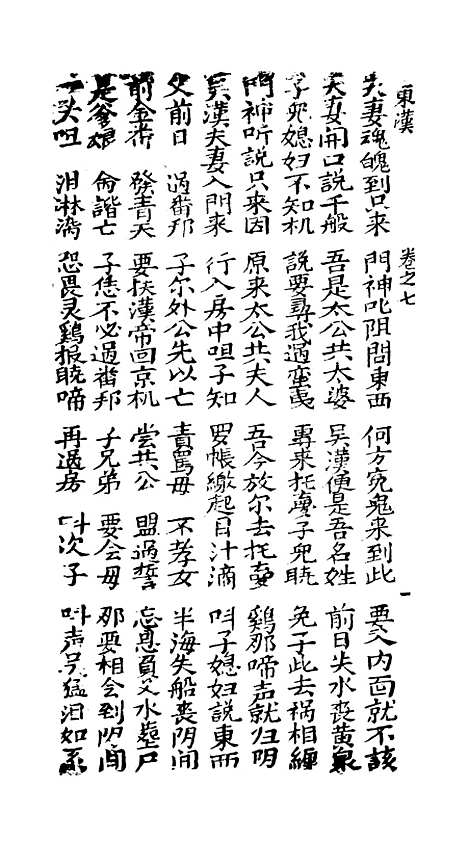 東漢　卷之七
夫妻魂魄到只来　門神叱阻問東西　何方冤鬼来到此　要入内面就不該
夫妻開口説千般　吾是太公共太婆　吴漢便是吾名姓　前日失水喪黄泉
子兒媳妇不知机　説要尋我過蛮夷　專来托夢子兒曉　免子此去祸相纏
門神听説只来因　原来太公共夫人　吾今放尔去托夢　鷄那啼声就归明
吴漢夫妻入門来　行入房中咀子知　罗帳繳起目汁滴　呌子媳妇説東西
父前日過番邦　子尔外公先以亡　責罵母不孝女　半海失船喪阴间
前金番發青天　要扶漢帝回京机　嘗共公盟過誓　忘恩負义水塟尸
是爹娘命諧亡　子恁不必過番邦　子兄弟要会毋　那要相会到阴间
头咀泪淋滴　恐畏灵鷄报曉啼　再過房呌次子　呌声吴猛泪如